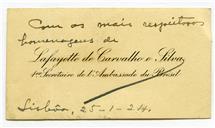 Com os mais respeitosos
homenagens de
Lafayette de Carvalho e Silva
1er Secrétaire de l'Ambassade du Brésil
Lisbôa, 25-1-24.